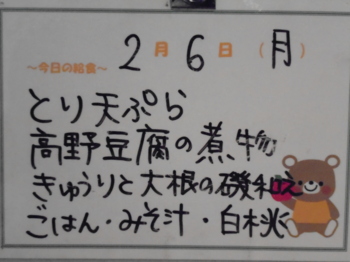 2月6日(月)
～今日の給食～
とり天ぷら
高野豆腐の煮物
きゅうりと大根の磯和え
ごはん・みそ汁・白桃